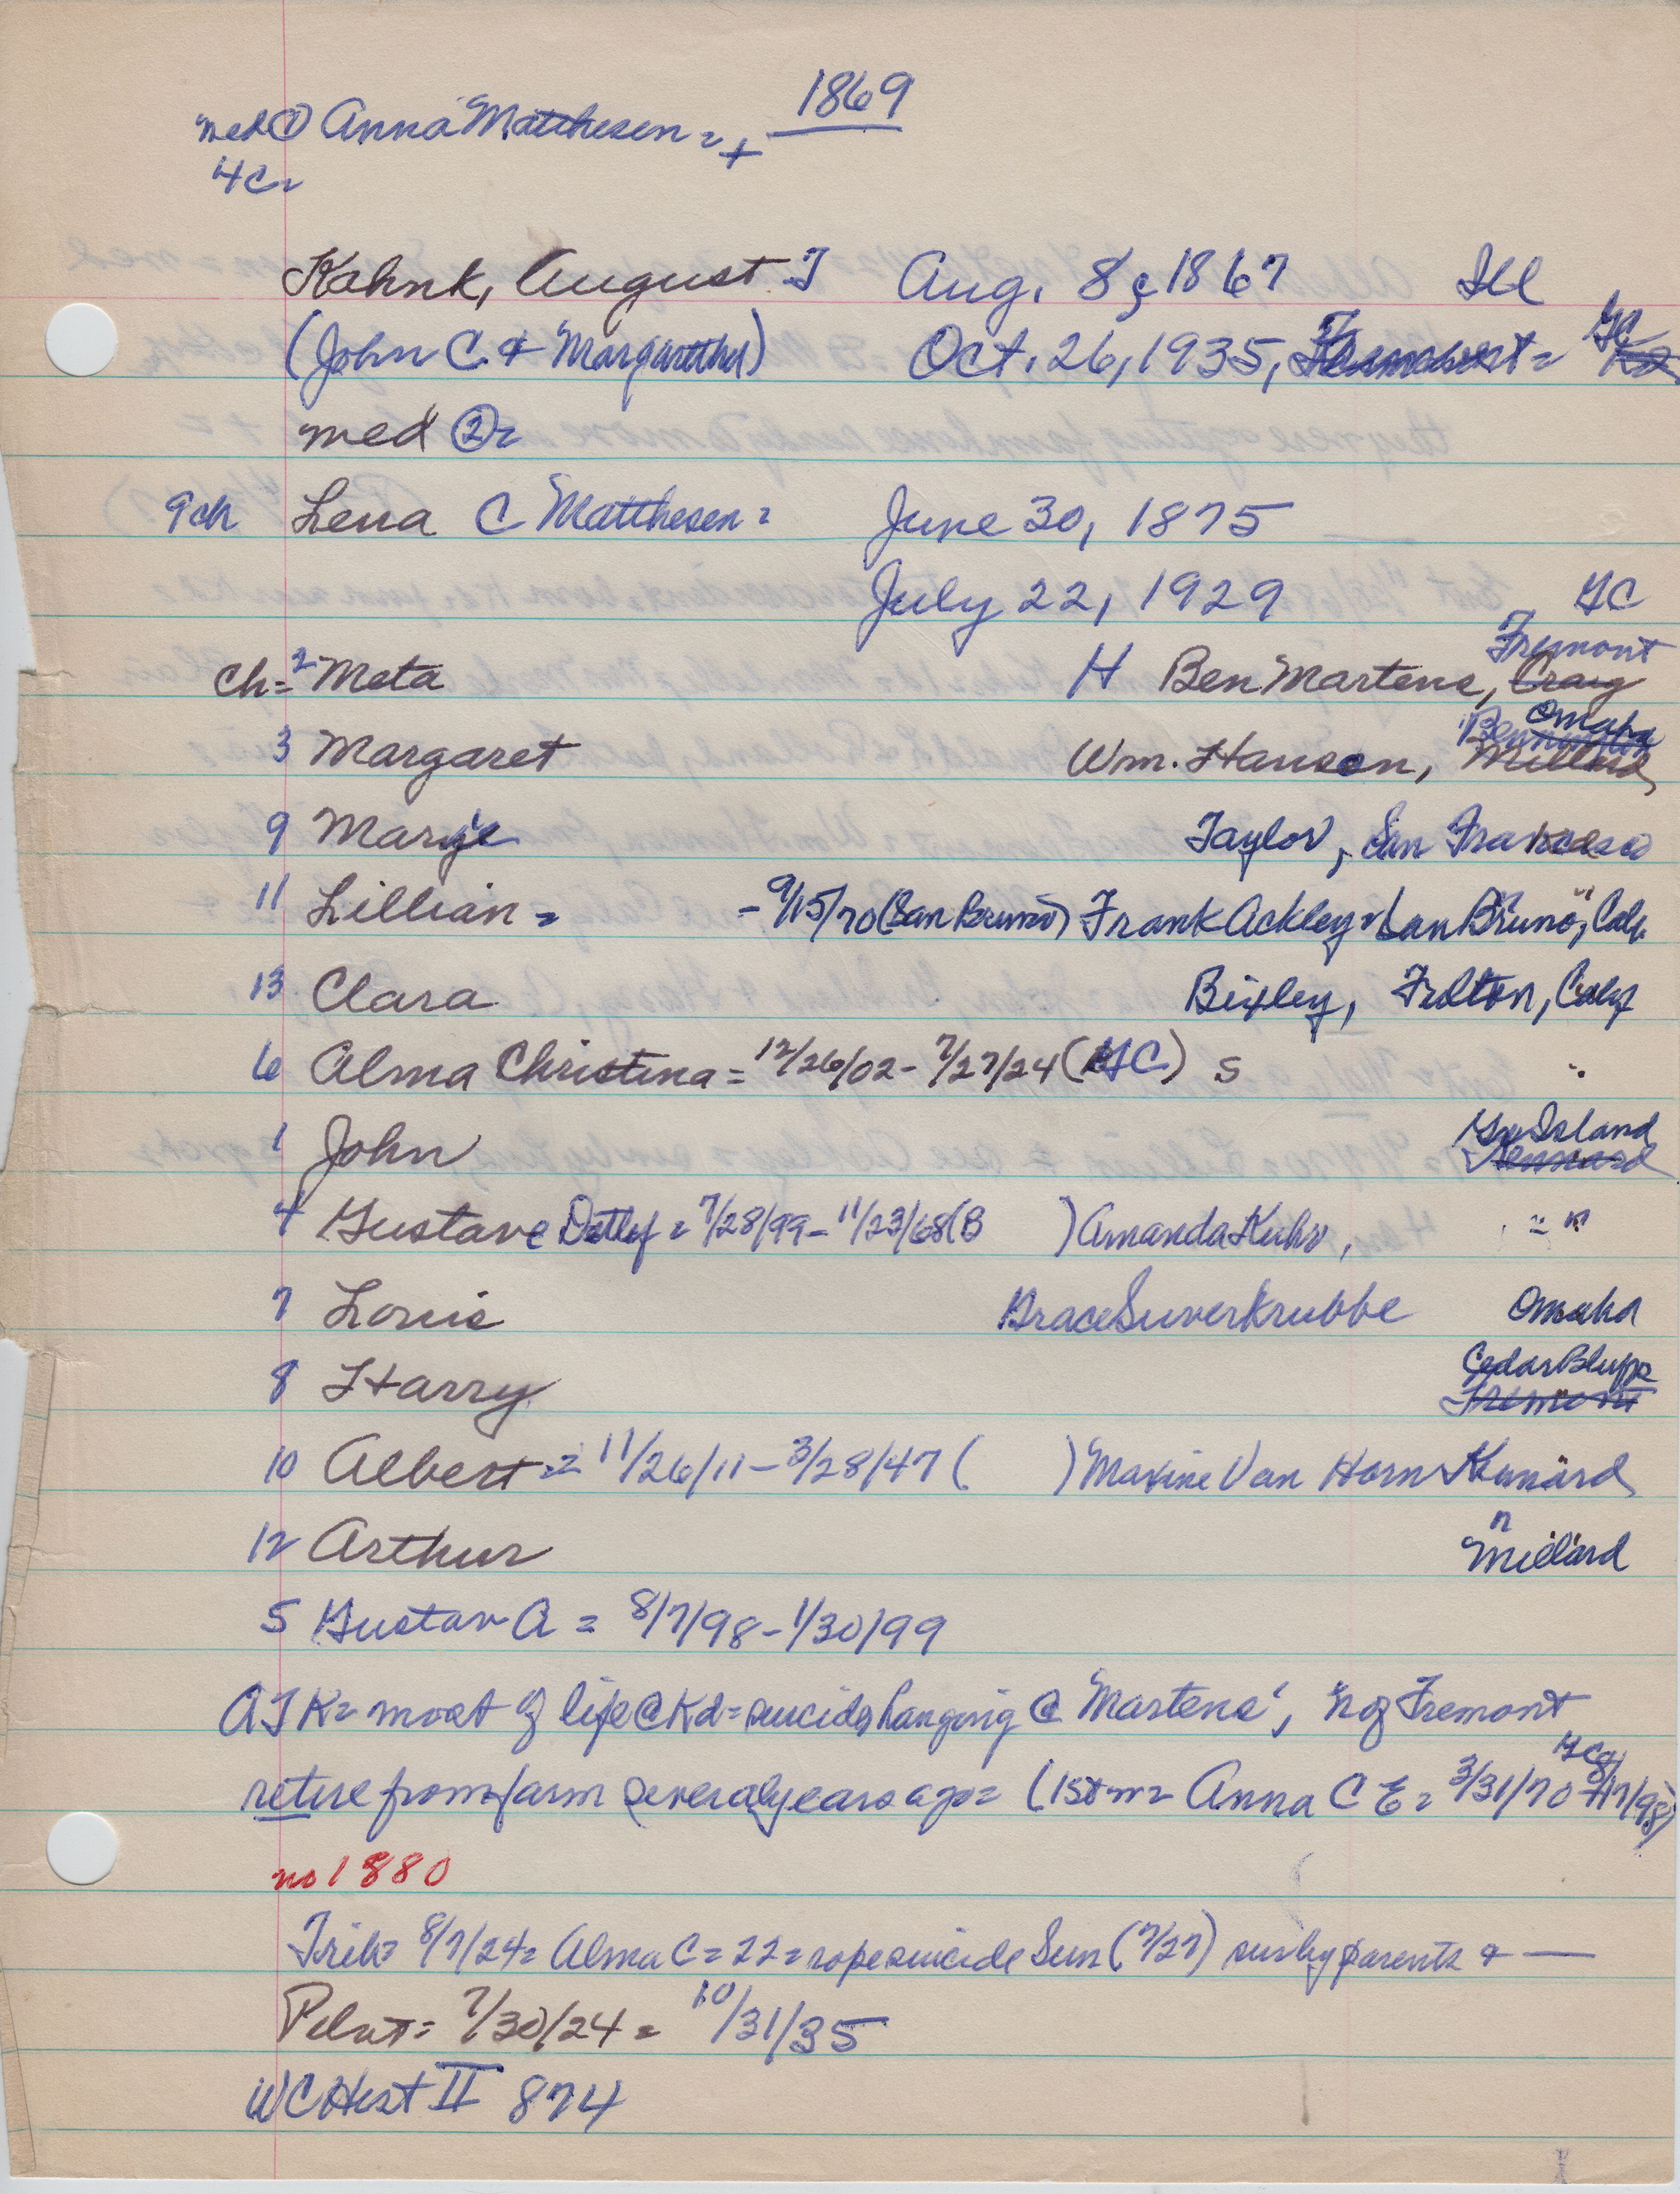 1869
med ① Anna Matthesen = +
4 C =
Kahnk, August J Aug. 8, 1867 Ill
(John C. & Margarethe) Oct. 26, 1935, Fremont = GC
med ② =
9 ch Lena C Matthesen = June 30, 1875
July 22, 1929 GC
Fremont
Ch = 2 Meta H Ben Martens, Craig
Omaha
Bennington
3 Margaret Wm. Hansen, Millard
9 Marije Taylor, San Francisco
11 Lillian = - 9/15/70 (San Bruno) Frank Ackley = San Bruno, Calif
13 Clara Bixley, Fulton, Calif
6 Alma Christina = 12/26/02 - 7/27/24 (GC) S "
Gr Island
1 John Kennard
4 Gustave Detlef = 7/28/99 - 11/23/68 (B ) Amanda Kuhr, = "
7 Louis Grace Suverkrubbe Omaha
Cedar Bluffs
8 Harry Fremont
10 Albert = 11/26/11 - 3/28/47 ( ) Maxine Van Horn Kennard
"
12 Arthur Millard
5 Gustav A = 8/7/98 - 1/30/99
AJK = most of life @ Kd = suicide hanging @ Martens', n of Fremont
GC
retire from farm several years ago = (1st m = Anna C E = 3/31/70 - 8/17/98)
no 1880
Trib = 8/7/24 = Alma C = 22 = rope suicide Sun (7/27) surby parents & —
Pilot = 7/30/24 = 10/31/35
WC Hist II 874